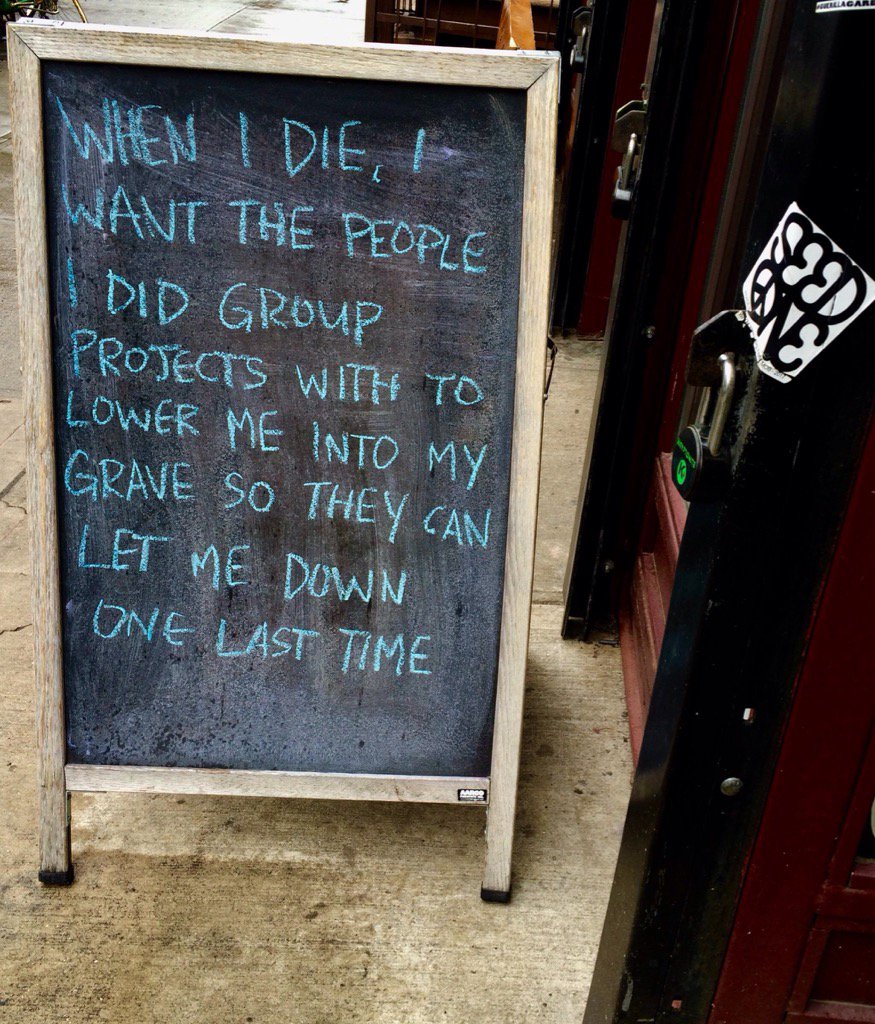 WHEN I DIE, I
WANT THE PEOPLE
I DID GROUP
PROJECTS WITH TO
LOWER ME INTO MY
GRAVE SO THEY CAN
LET ME DOWN
ONE LAST TIME
AARCO